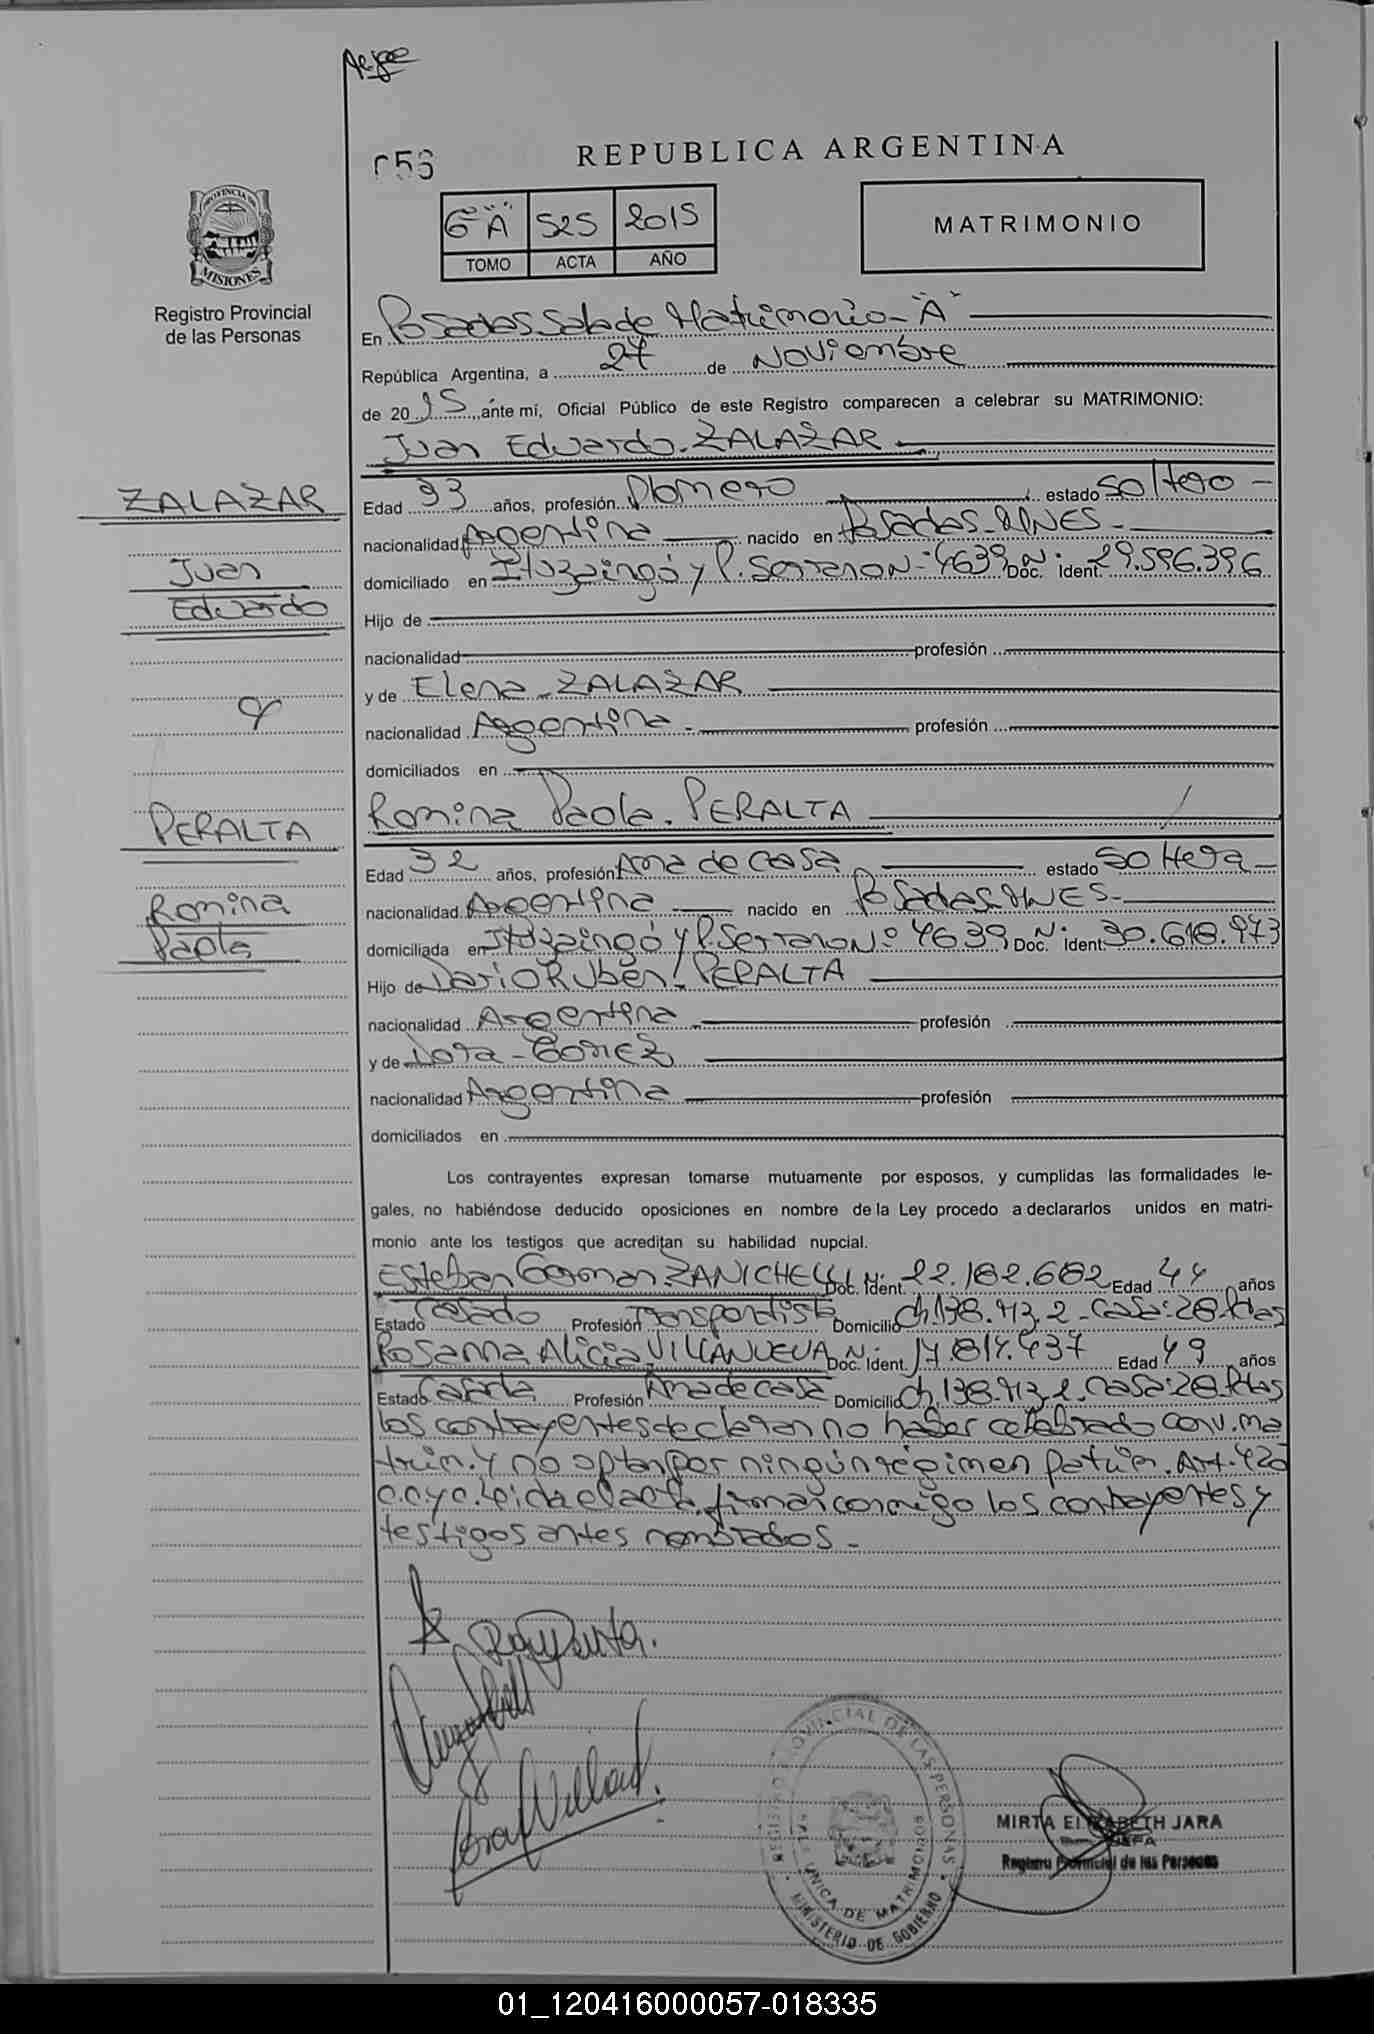 056
REPUBLICA ARGENTINA
6º "A" 525 2015
TOMO ACTA AÑO
MATRIMONIO
PROVINCIA DE
MISIONES
Registro Provincial
de las Personas
En Posadas Sala de Matrimonio - "A"
República Argentina, a 27 de Noviembre
de 2015, ante mi, Oficial Público de este Registro comparecen a celebrar su MATRIMONIO:
Juan Eduardo ZALAZAR
ZALAZAR
Juan
Eduardo
Edad 33 años, profesión Plomero estado Soltero -
nacionalidad Argentina nacido en Posadas - MNES -
domiciliado en Ituzaingó y P. Serrano Nº 4639 Doc. Nº Ident. 29.596.396
Hijo de
nacionalidad profesión
y de Elena ZALAZAR
nacionalidad Argentina - profesión
domiciliados en
y
PERALTA
Romina
Paola
Romina Paola. PERALTA
Edad 32 años, profesión Ama de casa estado Soltera -
nacionalidad Argentina nacido en Posadas MNES -
domiciliada en Ituzaingó y P. Serrano Nº 4639 Doc. Nº Ident. 30.618.973
Hijo de Dario Rubén PERALTA
nacionalidad Argentina profesión
y de Dora - GOMEZ
nacionalidad Argentina profesión
domiciliados en
Los contrayentes expresan tomarse mutuamente por esposos, y cumplidas las formalidades le-
gales, no habiéndose deducido oposiciones en nombre de la Ley procedo a declararlos unidos en matri-
monio ante los testigos que acreditan su habilidad nupcial.
Esteban German ZANICHELLI Doc. Nº Ident. 22.182.682 Edad 44 años
Estado Casado Profesión Transportista Domicilio Ch. 138. 2 - Casa: 28. Pdas
Rosanna Alicia VILLANUEVA Doc. Nº Ident. 17.814.437 Edad 49 años
Estado Casada Profesión Ama de casa Domicilio Ch. 138. 2. Casa: 28. Pdas
los contrayentes declaran no haber celebrado conv. ma
trim. y no optan por ningún régimen patrim. Art. 420
c.c y c. Leida el acta, firman conmigo los contrayentes y
testigos antes nombrados -
REGISTRO PROVINCIAL DE LAS PERSONAS
SALA UNICA DE MATRIMONIOS
MINISTERIO DE GOBIERNO
MIRTA ELIZABETH JARA
JEFA
Registro Provincial de las Personas
01_120416000057-018335